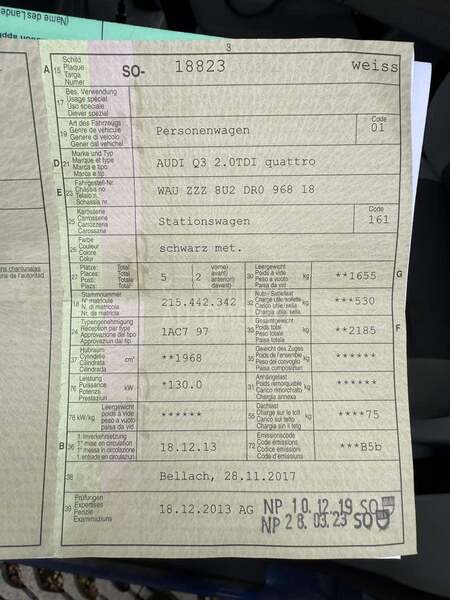 (Name des Lande
3
A 15 Schild Plaque Targa Numer SO- 18823 weiss
17 Bes. Verwendung Usage spécial Uso speciale Diever spezial
19 Art des Fahrzeugs Genre de véhicule Genere di veicolo Gener dal vehichel Personenwagen Code 01
D 21 Marke und Typ Marque et type Marca e tipo Marca e tip AUDI Q3 2.0TDI quattro
E 23 Fahrgestell-Nr. Châssis no Telaio n. Schassis nr. WAU ZZZ 8U2 DR0 968 18
25 Karosserie Carrosserie Carrozzeria Carossaria Stationswagen Code 161
26 Farbe Couleur Colore Color schwarz met.
27 Plätze: Total Places: Total Posti: Totale Plazs: Total 5 2 vorne) avant) anteriori) davant) 30 Leergewicht Poids à vide Peso a vuoto Paisa da vid kg **1655 G
18 Stammnummer N° matricule N. di matricola Nr. da matricla 215.442.342 32 Nutz-/Sattellast Charge utile/sellette Carico utile/sella Chargia nizz./sella kg ***530
24 Typengenehmigung Réception par type Approvazione del tipo Approvaziun dal tip 1AC7 97 33 Gesamtgewicht Poids total Peso totale Paisa totala kg **2185 F
37 Hubraum Cylindrée Cilindrata Cilindrada cm³ **1968 35 Gewicht des Zuges Poids de l'ensemble Peso del convoglio Paisa cumposiziun kg ******
76 Leistung Puissance Potenza Prestaziun kW *130.0 31 Anhängelast Poids remorquable Carico rimorchiato Chargia annexa kg ******
78 kW/kg Leergewicht poids à vide peso a vuoto paisa da vid ****** 55 Dachlast Charge sur le toit Carico sul tetto Chargia sin il tetg kg ****75
B 36 1. Inverkehrsetzung 1re mise en circulation 1a messa in circolazione 1. entrada en circulaziun 18.12.13 72 Emissionscode Code émissions Codice emissioni Code d'emissiuns ***B5b
38 Bellach, 28.11.2017
39 Prüfungen Expertises Perizie Examinaziuns 18.12.2013 AG NP 10.12.19 SO
NP 28.03.23 SO